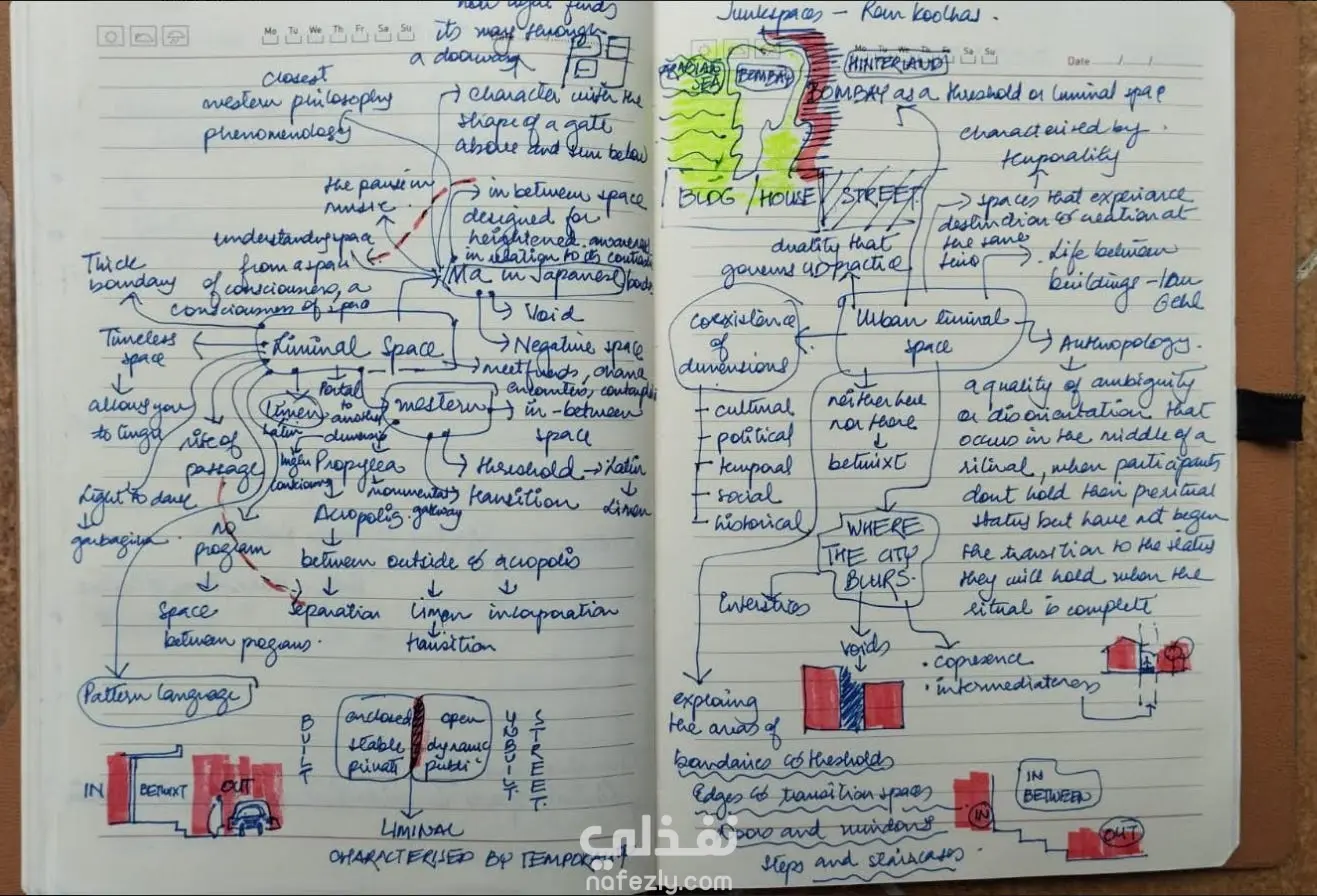 its way through
a doorway
Mo Tu We Th Fr Sa Su
closest
western philosophy
phenomenology
character with the
shape of a gate
above and sun below
the pause in
music
in between space
designed for
heightened
in relation to its
understanding space
from a span
of consciousness, a
consciousness of space
Ma in Japanese
Thick
boundary
Void
Timeless
space
Liminal Space
Negative space
meet friends,
encounters,
allows you
to linger
Limen
Latin
Portal
to
another
dimension
western
in-between
space
rite of
passage
Propylea
monumental
gateway
threshold → Latin
Limen
transition
Light to dark
Acropolis
no
program
between outside & acropolis
Space
between programs.
Separation
Limen
incorporation
transition
Pattern Language
BUILT
enclosed
stable
private
open
dynamic
public
UNBUILT
STREET.
IN
BETWIXT
OUT
LIMINAL
CHARACTERISED BY TEMPORALITY
Junkspaces - Rem Koolhas.
Sa Su
Date / /
ARABIAN
SEA
BOMBAY
HINTERLAND
BOMBAY as a threshold or liminal space
characterised by
temporality
BLDG / HOUSE
STREET
spaces that experience
destruction & creation at
the same
time
duality that
governs
practice
Life between
buildings - Jan
Gehl
coexistence
of
dimensions
Urban liminal
space
Anthropology.
cultural
political
temporal
social
historical
neither here
nor there
betwixt
a quality of ambiguity
or disorientation that
occurs in the middle of a
ritual, when participants
dont hold their preritual
status but have not begun
the transition to the status
they will hold when the
ritual is complete
WHERE
THE CITY
BLURS.
Interstices
voids
copresence
intermediateness
exploring
the areas of
boundaries & thresholds
Edges & transition spaces
Doors and windows
Steps and staircases.
IN
IN
BETWEEN
OUT
نفذلي
nafezly.com